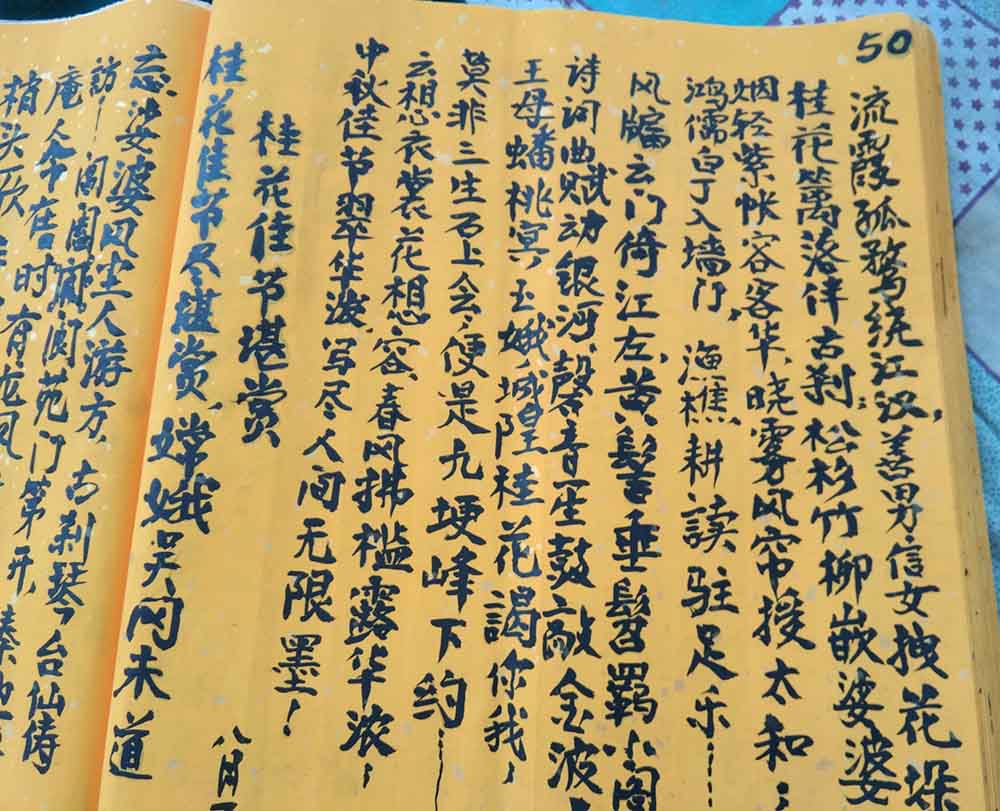 50
流霞孤鹜绕江汉,善男信女拽花垛
桂花万落伴古刹:松杉竹柳嵌婆婆
烟轻紫帐容客华,晓雾风帘授太和;
鸿儒白丁入墙门,渔樵耕读驻足乐……
风牖云门倚江左,黄髫垂髫羁小阁
诗词曲赋动银河,磬音笙鼓敲金波
王母蟠桃冥玉娥,城隍桂花谒你我,
莫非三生石上会,便是九埂峰下约……
云想衣裳花想容,春风拂槛露华浓,
中秋佳节翠华渡,写尽人间无限墨!
桂花佳节堪赏
八月
桂花佳节尽堪赏,嫦娥吴冈未道
忘婆娑风尘人游方,古刹琴台仙俦
访一阊阖阆阆苑门第开,
庵人今在
时有
梢头